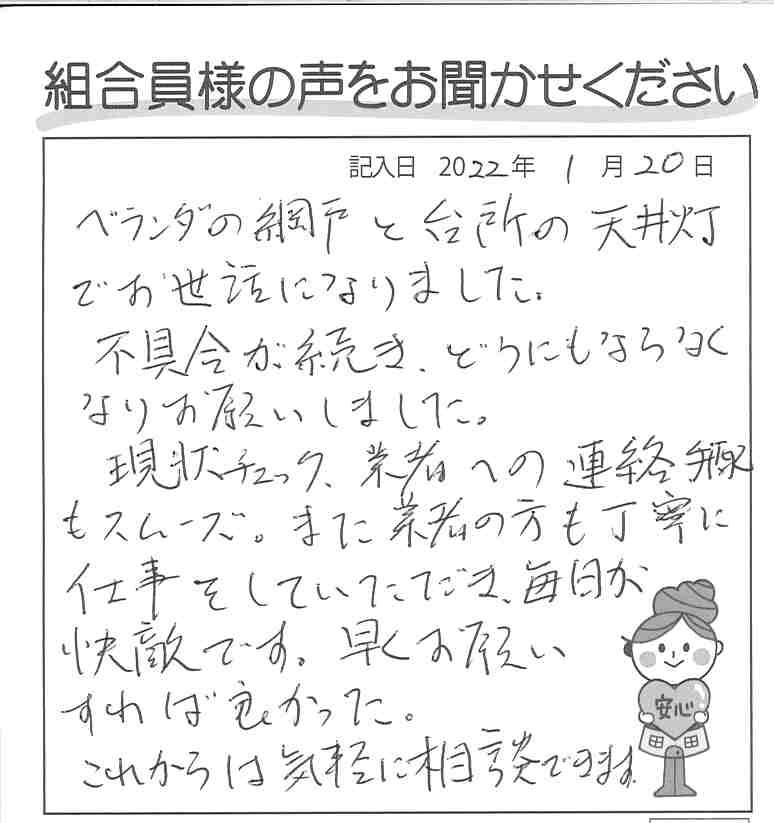 組合員様の声をお聞かせください
記入日 2022年 1月20日
ベランダの網戸と台所の天井灯
でお世話になりました。
不具合が続き、どうにもならなく
なりお願いしました。
現状チェック、業者への連絡手配
もスムーズ。また業者の方も丁寧に
仕事をしていただき、毎日が
快敵です。早くお願い
すれば良かった。
これからは気軽に相談できます
安心